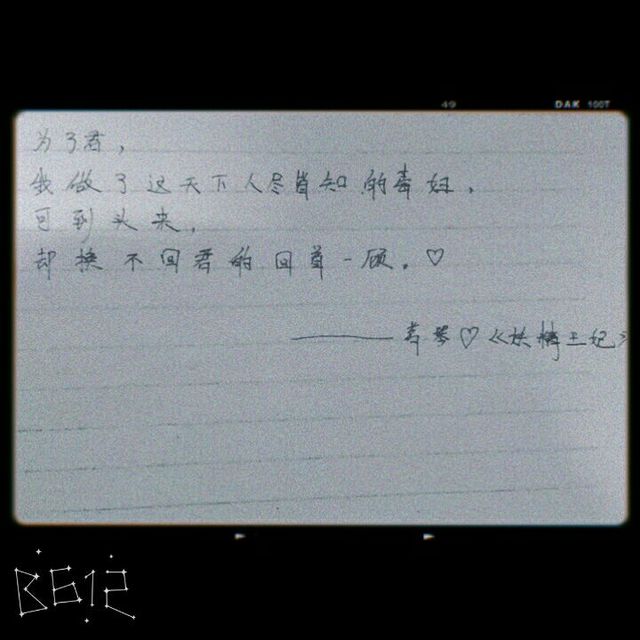 49 DAK 100T
为了君，
我做了这天下人尽皆知的毒妇，
可到头来，
却换不回君的回首一顾。♡
——— 青琴♡《妖情王妃》
B612